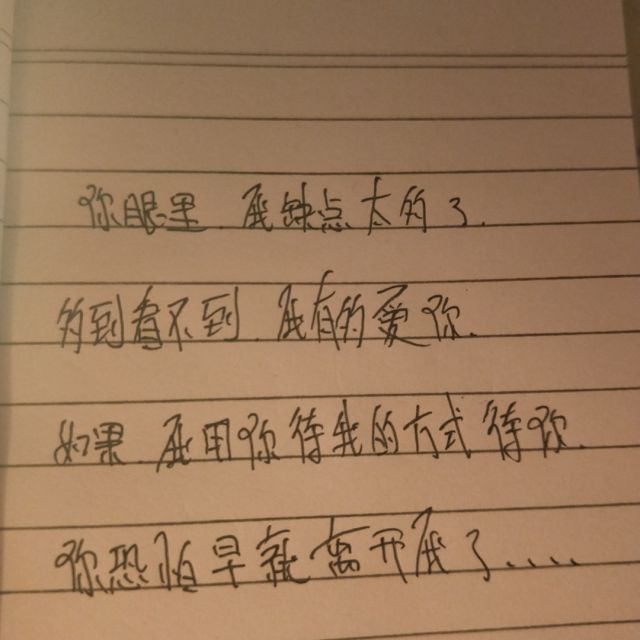 你眼里.我缺点太多了.
多到看不到.我有多爱你.
如果.我用你待我的方式待你.
你恐怕早就离开我了.....